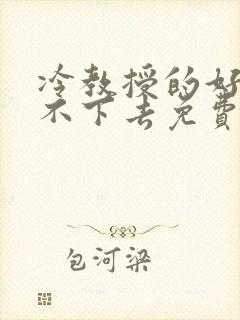 冷教授的好
不下去免费
包河梁